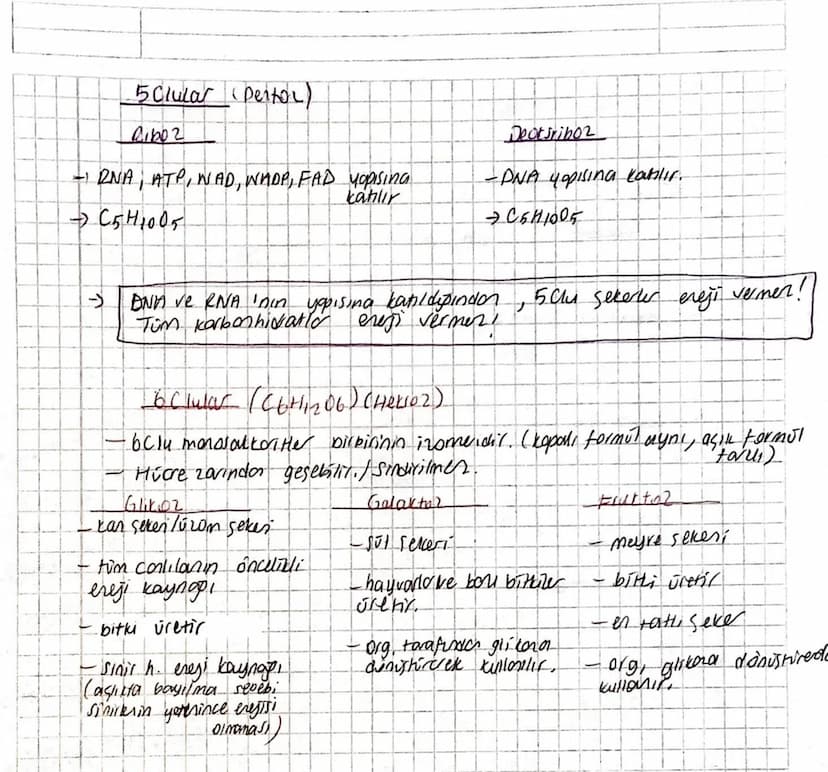 5Clular (Pentoz)
Riboz
Deoksiriboz
→ RNA, ATP, NAD, NADP, FAD yapısına katılır
→ C5H10O5
- DNA yapısına katılır.
→ C5H10O5
→ DNA ve RNA'nın yapısına katıldığından, 5Clu şekerler enerji vermez!
Tüm karbonhidratlar enerji vermez!
6Clular (C6H12O6) (Heksoz)
- 6Clu monosakkaritler birbirinin izomeridir. (kapalı formül aynı, açık formül farklı)
- Hücre zarından geçebilir. / Sindirilmez.
Glikoz
- kan şekeri/üzüm şekeri
- tüm canlıların öncelikli
enerji kaynağı
- bitki üretir
- sinir h. enerji kaynağı
(açlıkta bayılma sebebi
sinirlerin yeterince enerjisi
olmaması)
Galaktoz
- süt şekeri
- hayvanlar ve bazı bitkiler
üretir.
- org. tarafından glikoza
dönüştürerek kullanılır.
Fruktoz
- meyve şekeri
- bitki üretir
- en tatlı şeker
- org, glikoza dönüştürerek
kullanır.